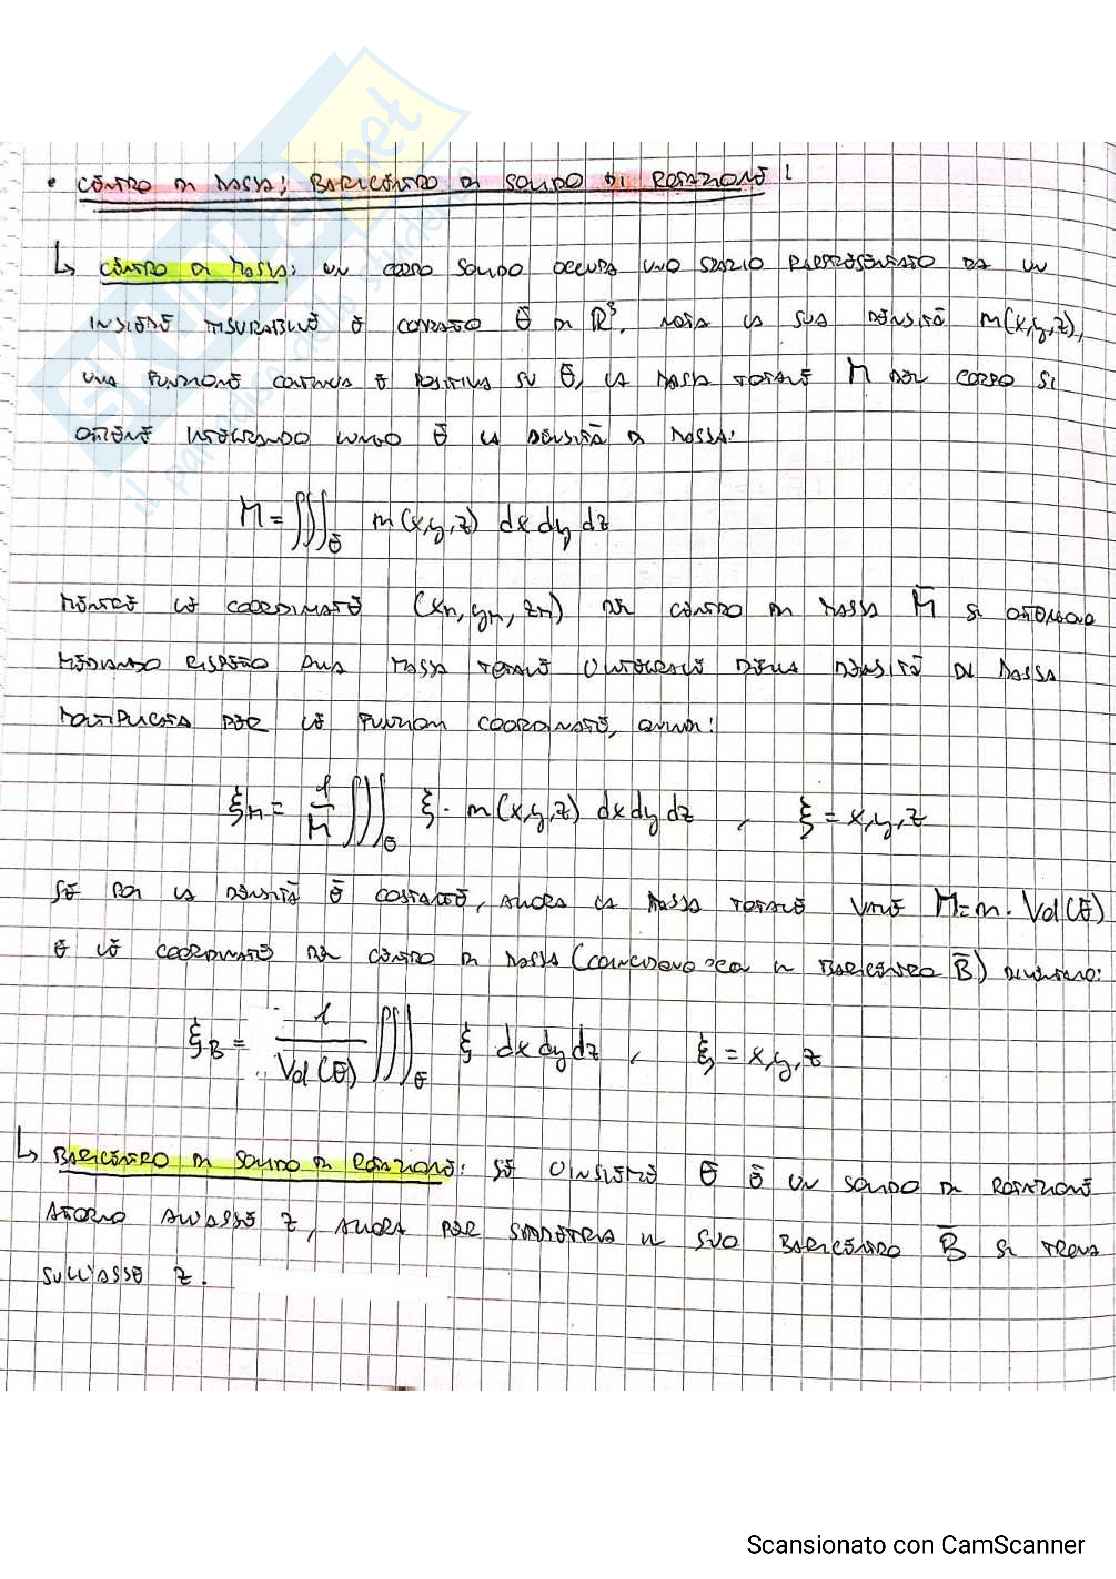 • CENTRO DI MASSA; BARICENTRO DI SOLIDO DI ROTAZIONE:
↳ CENTRO DI MASSA: UN CORPO SOLIDO OCCUPA UNO SPAZIO RAPPRESENTATO DA UN
INSIEME MISURABILE E COMPATTO E DI R³, NOTA LA SUA DENSITÀ m(x,y,z),
UNA FUNZIONE CONTINUA E POSITIVA SU E, LA MASSA TOTALE M DEL CORPO SI
OTTIENE INTEGRANDO LUNGO E LA DENSITÀ DI MASSA:
M = ∭_E m(x,y,z) dx dy dz
MENTRE LE COORDINATE (x_M, y_M, z_M) DEL CENTRO DI MASSA M̄ SI OTTENGONO
MEDIANDO RISPETTO ALLA MASSA TOTALE L'INTEGRALE DELLA DENSITÀ DI MASSA
MOLTIPLICATA PER LE FUNZIONI COORDINATE, QUINDI:
ξ_M = 1/M ∭_E ξ · m(x,y,z) dx dy dz , ξ = x,y,z
SE POI LA DENSITÀ È COSTANTE, ALLORA LA MASSA TOTALE VALE M = m · Vol(E)
E LE COORDINATE DEL CENTRO DI MASSA (COINCIDENTE COL BARICENTRO B̄) DIVENTANO:
ξ_B = 1/Vol(E) ∭_E ξ dx dy dz , ξ = x,y,z
↳ BARICENTRO DI SOLIDO DI ROTAZIONE: SE L'INSIEME E È UN SOLIDO DI ROTAZIONE
ATTORNO ALL'ASSE Z, ALLORA PER SIMMETRIA IL SUO BARICENTRO B̄ SI TROVA
SULL'ASSE Z.
Scansionato con CamScanner